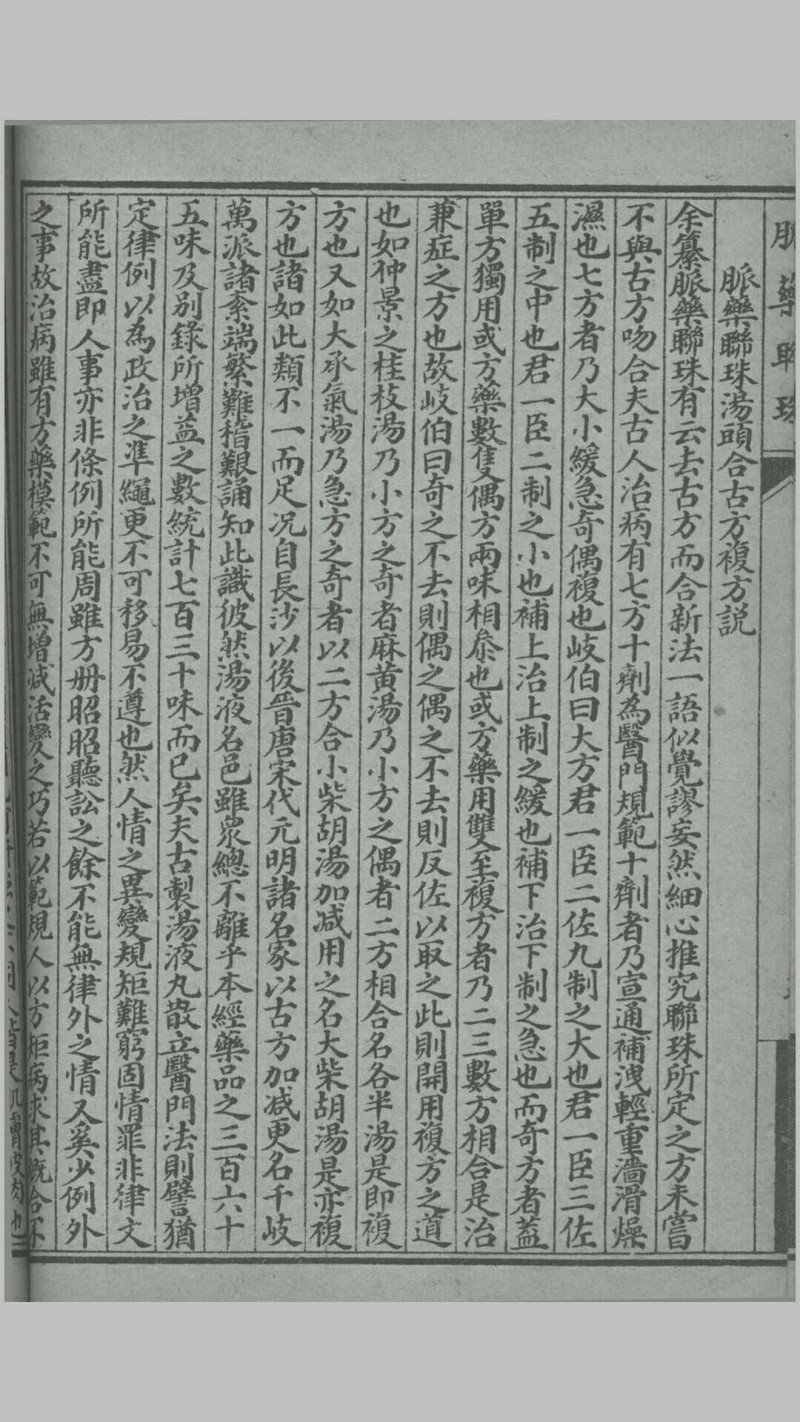 脈藥聯珠
脈藥聯珠湯頭合古方複方説
余纂脈藥聯珠有云去古方而合新法一語似覺謬妄然細心推究聯珠所定之方未嘗
不與古方吻合夫古人治病有七方十劑為醫門規範十劑者乃宣通補洩輕重濇滑燥
濕也七方者乃大小緩急奇偶複也岐伯曰大方君一臣二佐九制之大也君一臣三佐
五制之中也君一臣二制之小也補上治上制之緩也補下治下制之急也而奇方者蓋
單方獨用或方藥數隻偶方兩味相叅也或方藥用雙至複方者乃二三數方相合是治
兼症之方也故岐伯曰奇之不去則偶之偶之不去則反佐以取之此則開用複方之道
也如仲景之桂枝湯乃小方之奇者麻黄湯乃小方之偶者二方相合名各半湯是即複
方也又如大承氣湯乃急方之奇者以二方合小柴胡湯加减用之名大柴胡湯是亦複
方也諸如此類不一而足况自長沙以後晉唐宋代元明諸名家以古方加减更名千岐
萬派諸紊端繁難稽艱誦知此識彼然湯液名邑雖衆總不離乎本經藥品之三百六十
五味及别錄所增益之數統計七百三十味而已矣夫古製湯液丸散立醫門法則譬猶
定律例以為政治之凖繩更不可移易不遵也然人情之異變規矩難窮固情罪非律文
所能盡即人事亦非條例所能周雖方册昭昭聽訟之餘不能無律外之情又奚少例外
之事故治病雖有方藥模範不可無增减活變之巧若以範規人以方矩病求其概合不